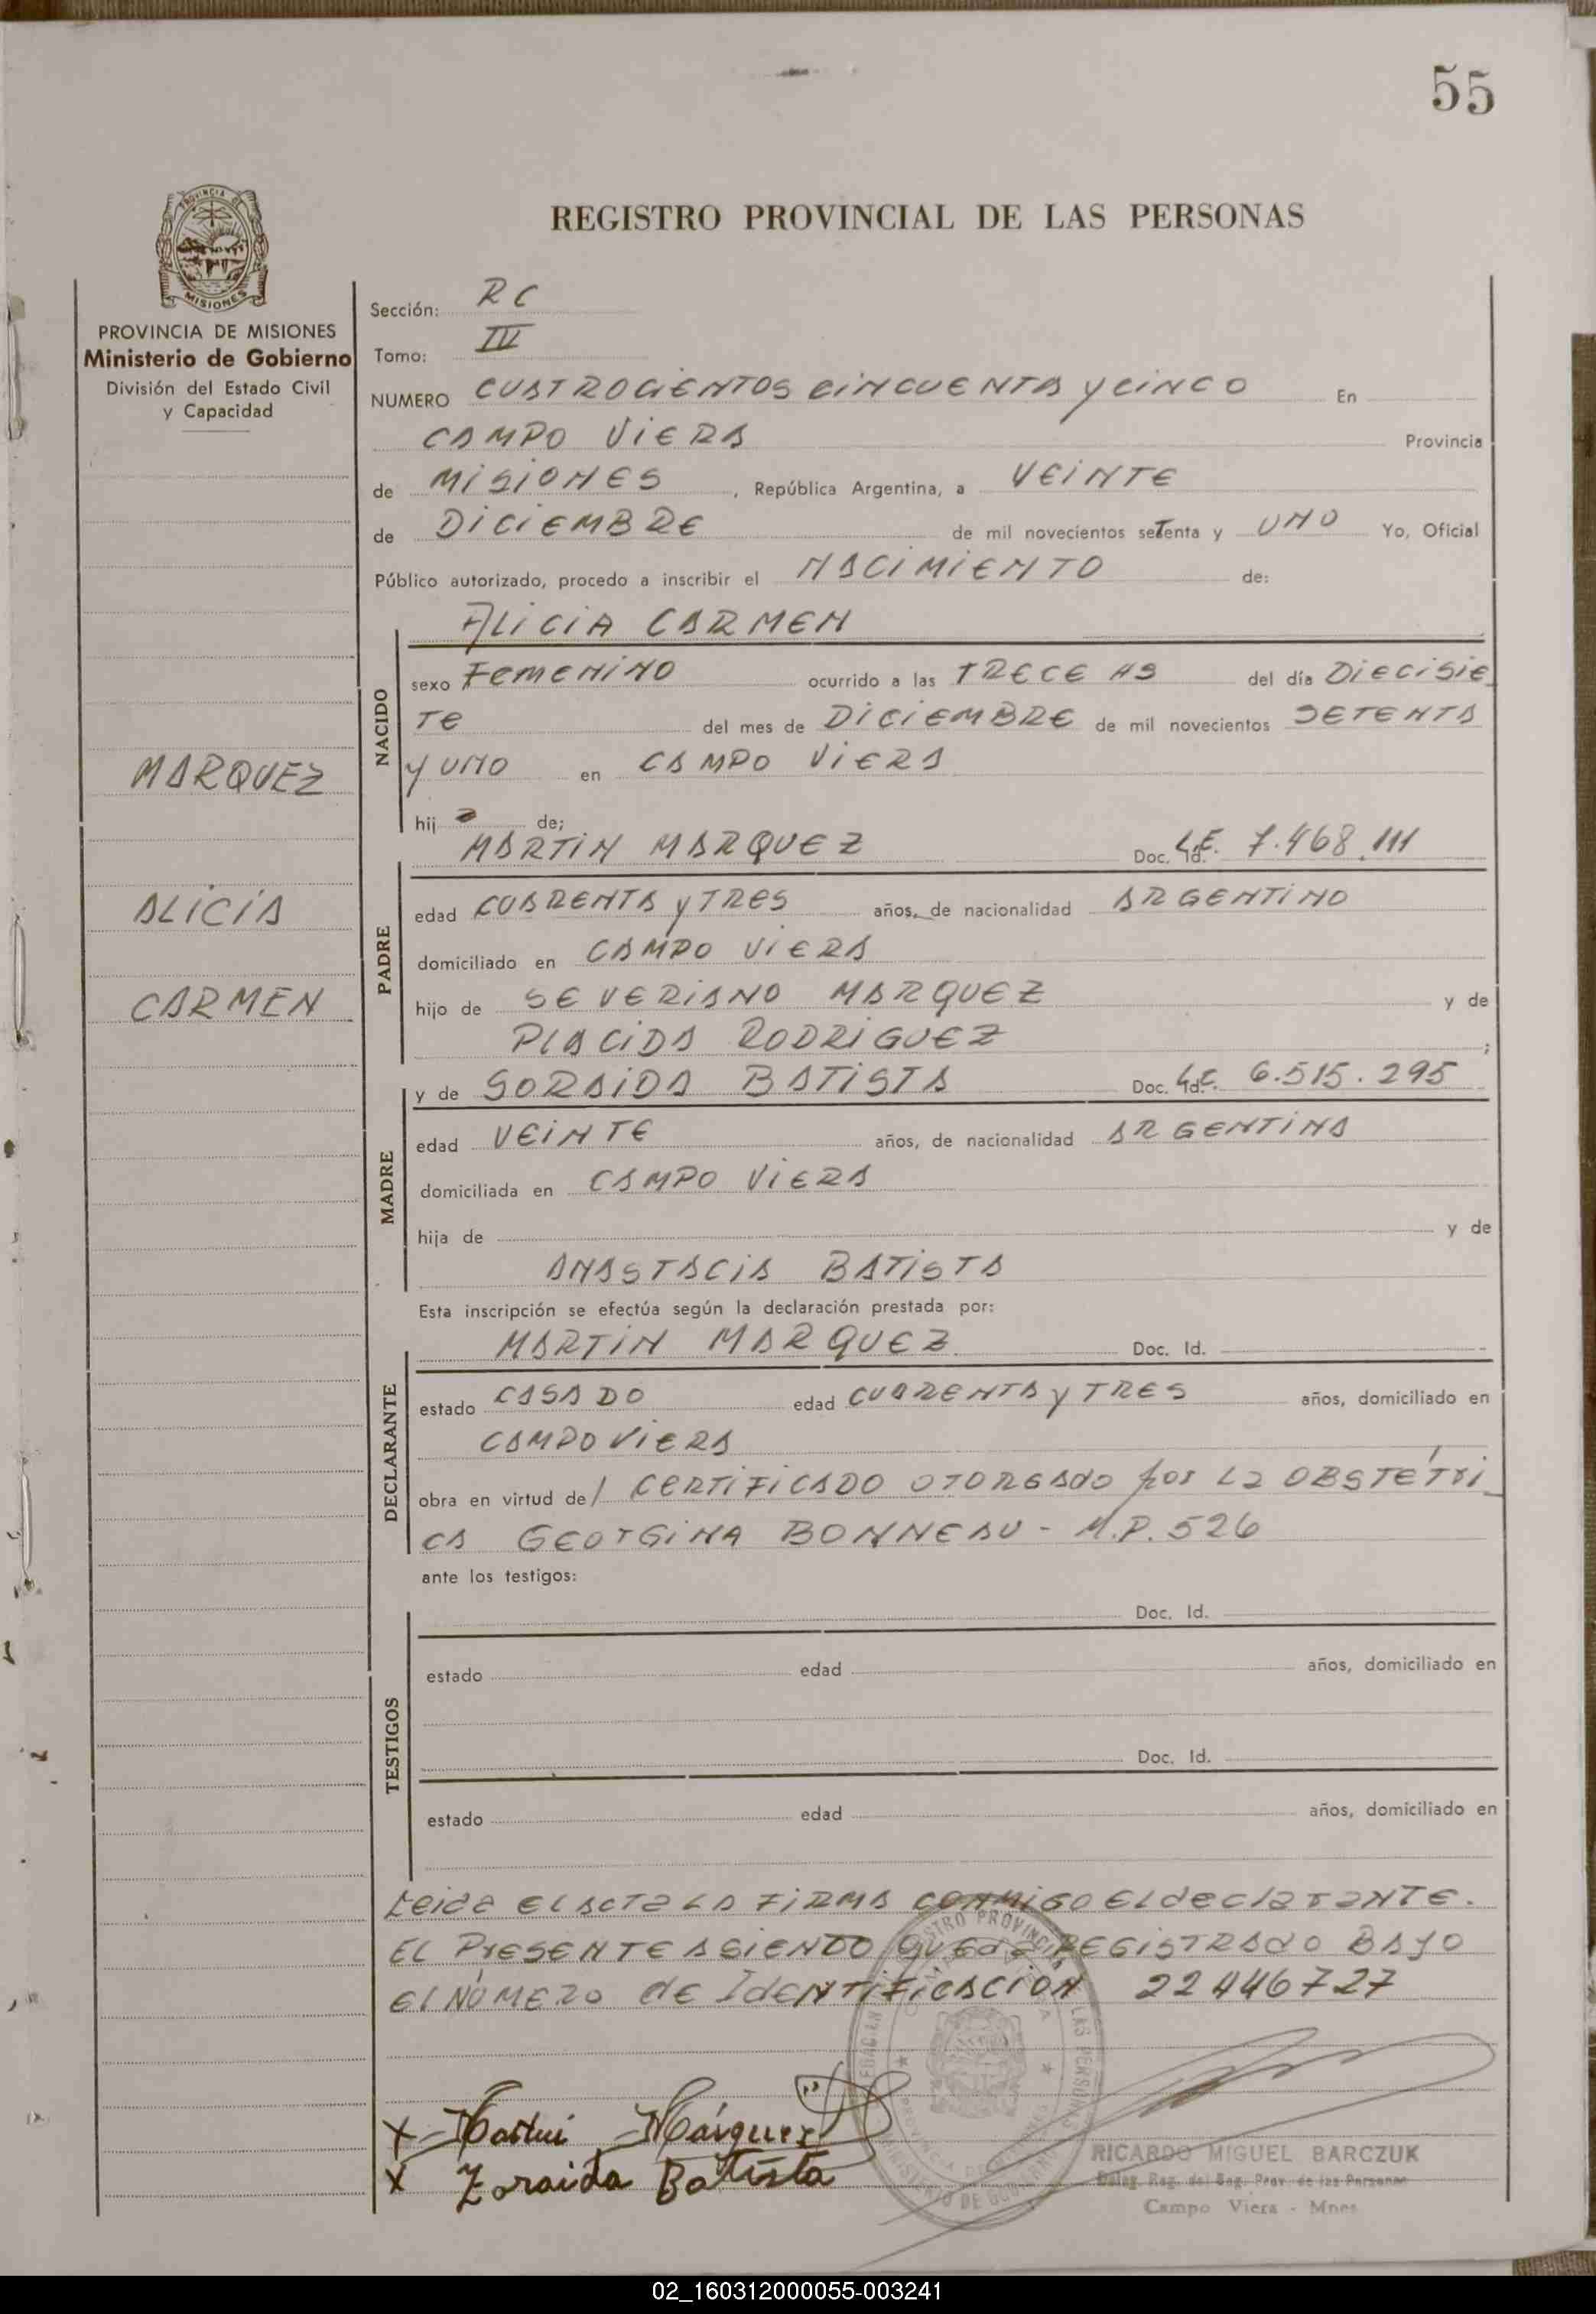 55
REGISTRO PROVINCIAL DE LAS PERSONAS
PROVINCIA DE
MISIONES
PROVINCIA DE MISIONES
Ministerio de Gobierno
División del Estado Civil
y Capacidad
MARQUEZ
ALICIA
CARMEN
Sección: RC
Tomo: IV
NUMERO CUATROCIENTOS CINCUENTA y CINCO En
CAMPO VIERA Provincia
de MISIONES, República Argentina, a VEINTE
de DICIEMBRE de mil novecientos seTenta y UNO Yo, Oficial
Público autorizado, procedo a inscribir el NACIMIENTO de:
ALICIA CARMEN
NACIDO
sexo FEMENINO ocurrido a las TRECE HS del día DIECISIE
TE del mes de DICIEMBRE de mil novecientos SETENTA
y UNO en CAMPO VIERA
hija de;
MARTIN MARQUEZ Doc. Id. L.E. 7.468.111
PADRE
edad CUARENTA y TRES años, de nacionalidad ARGENTINO
domiciliado en CAMPO VIERA
hijo de SEVERIANO MARQUEZ y de
PLACIDA RODRIGUEZ ;
y de SORAIDA BATISTA Doc. Id. L.C. 6.515.295
MADRE
edad VEINTE años, de nacionalidad ARGENTINA
domiciliada en CAMPO VIERA
hija de y de
ANASTACIA BATISTA
Esta inscripción se efectúa según la declaración prestada por:
MARTIN MARQUEZ Doc. Id.
DECLARANTE
estado CASADO edad CUARENTA y TRES años, domiciliado en
CAMPO VIERA
obra en virtud de/ CERTIFICADO OTORGADO por LA OBSTÉTRI
CA GEORGINA BONNEAU - M.P. 526
ante los testigos:
TESTIGOS
Doc. Id.
estado edad años, domiciliado en
Doc. Id.
estado edad años, domiciliado en
Leida el acta la FIRMA CONMIGO El declarante.
EL PRESENTE ASIENTO queda REGISTRADO BAJO
el NÚMERO de IDENTIFICACION 22446727
x Martin Márquez
x Zoraida Batista
RICARDO MIGUEL BARCZUK
Deleg. Reg. del Reg. Prov. de las Personas
Campo Viera - Mnes
02_160312000055-003241